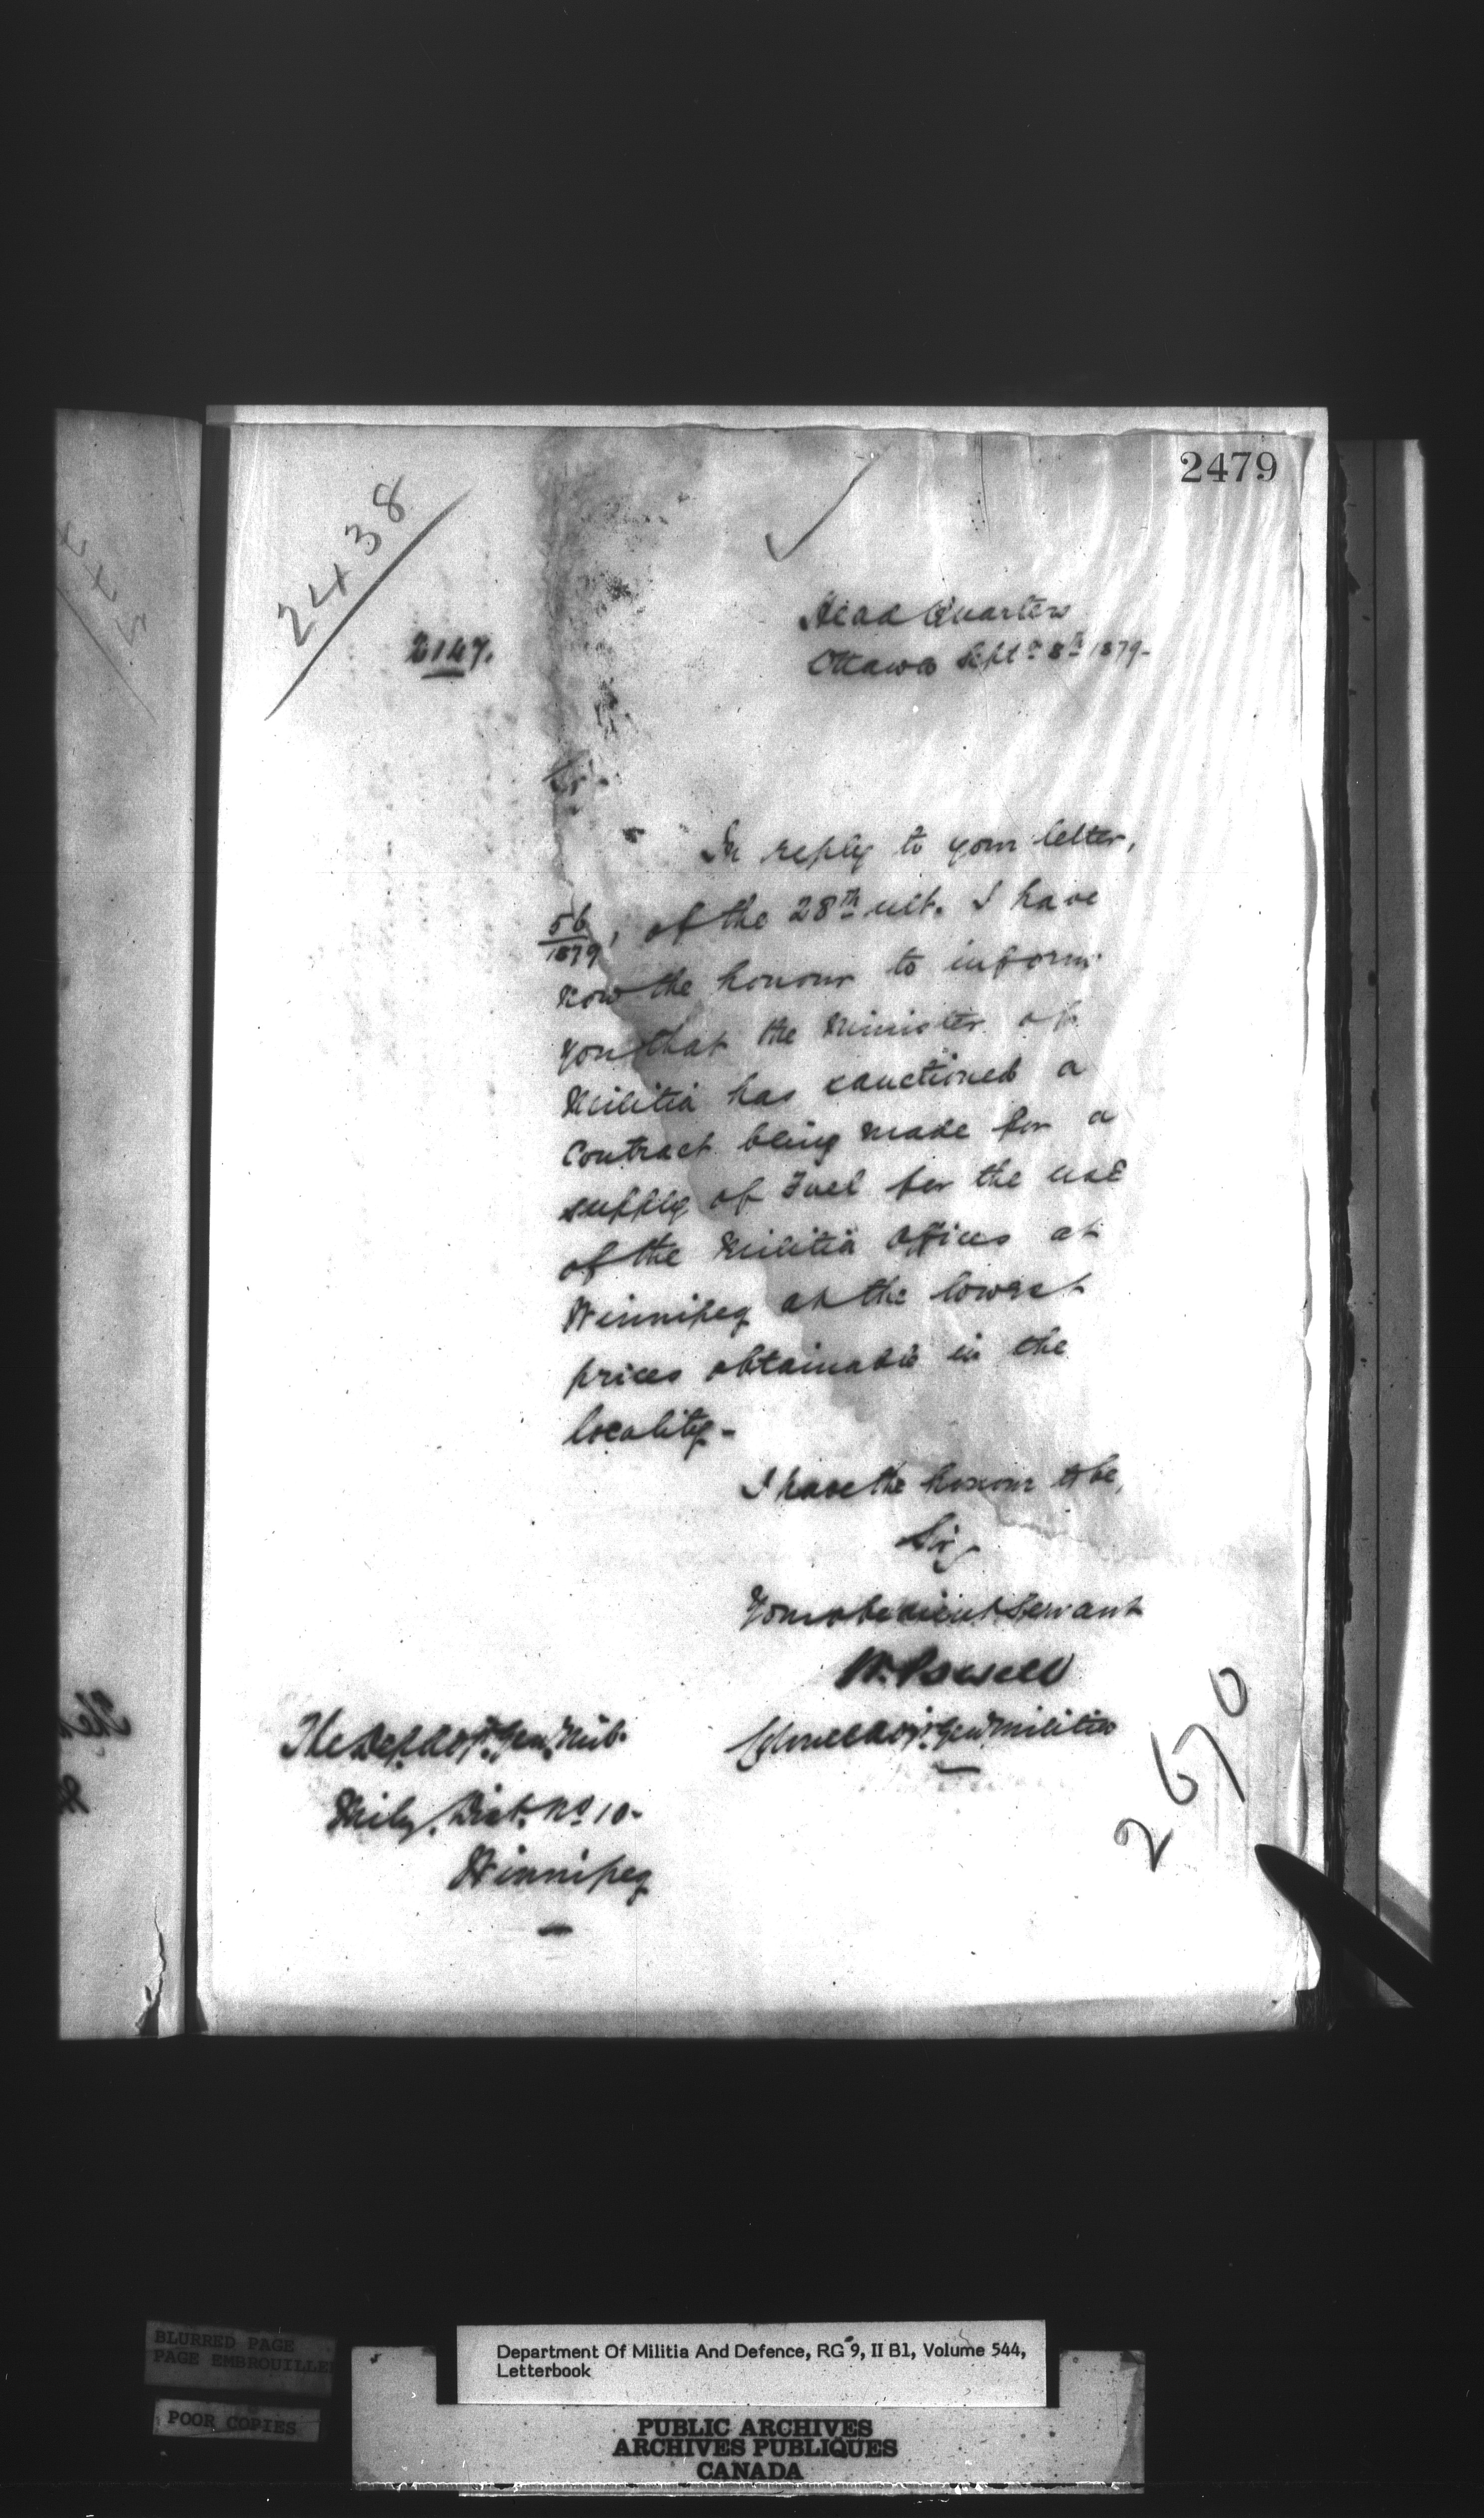 2479
2438
2147.
Head Quarters
Ottawa Sept. 8th 1879-
Sir.
In reply to your letter,
56/1879, of the 28th ult. I have
now the honour to inform
you that the Minister of
Militia has sanctioned a
Contract being made for a
supply of Fuel for the use
of the Militia offices at
Winnipeg at the lowest
prices obtainable in the
locality-
I have the honour to be,
Sir,
Your obedient Servant
W. Powell
Colonel Adjt. Genl Militia
The Dep. Adjt. Genl. Mil.
Mily. Dist. No 10-
Winnipeg
BLURRED PAGE
PAGE EMBROUILLE
POOR COPIES
Department Of Militia And Defence, RG 9, II B1, Volume 544,
Letterbook
PUBLIC ARCHIVES
ARCHIVES PUBLIQUES
CANADA